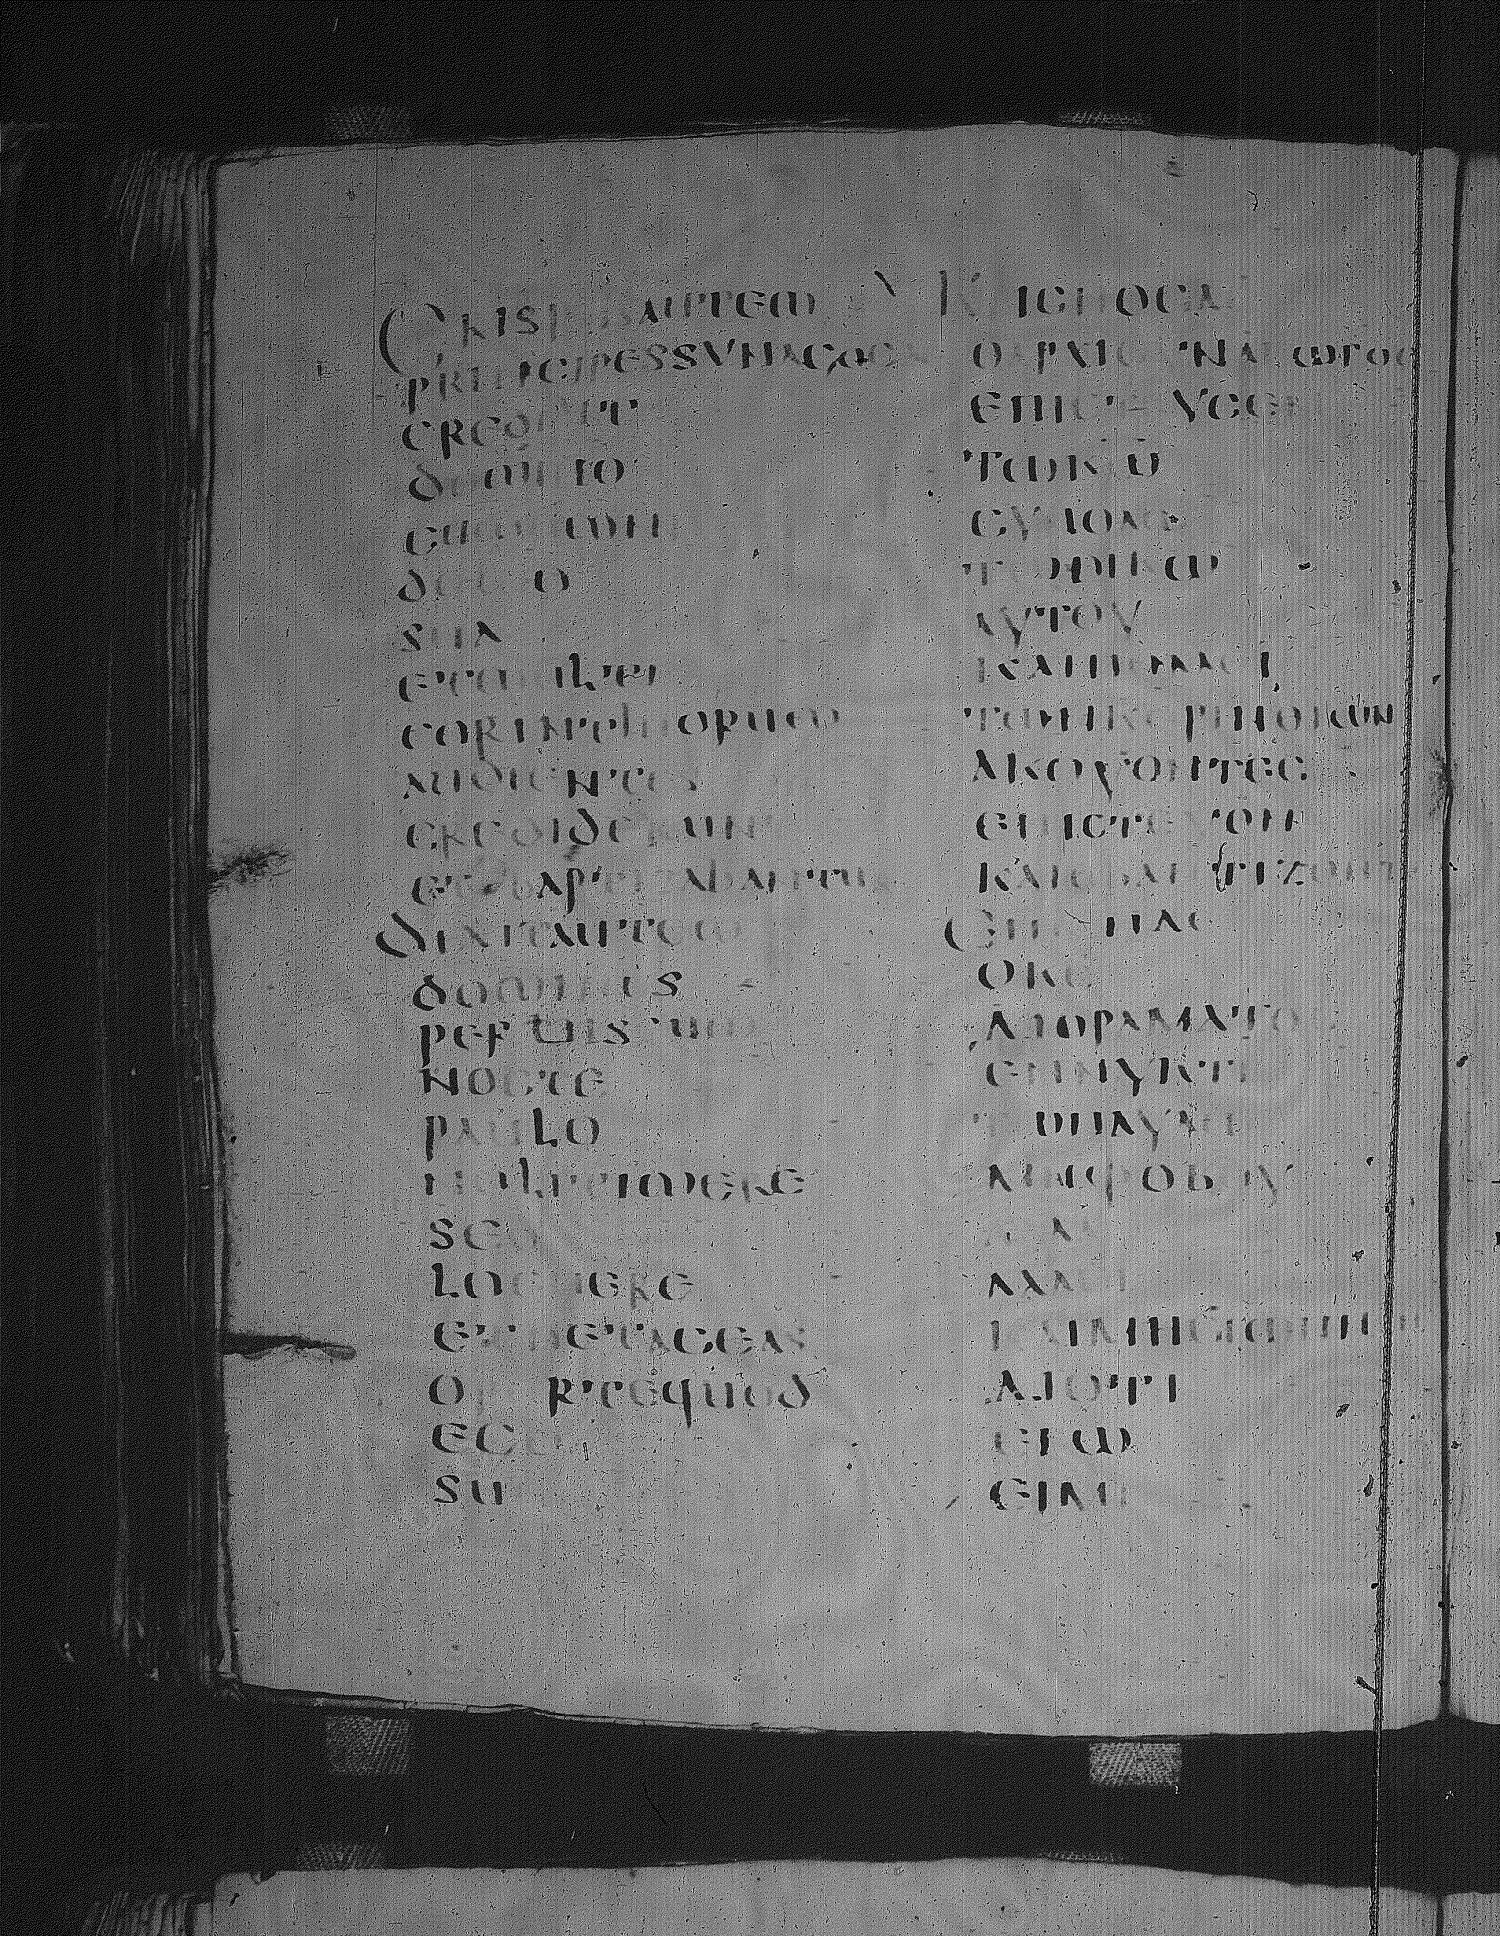 Crispus autem
principes synagogae
credidit
domino
cum omni
domo
sua
et multi
corinthiorum
audientes
crediderunt
et baptizabantur
Dixit autem
dominus
per uisum
nocte
paulo
noli timere
sed
loquere
et ne taceas
propter quod
ego
sum
ΚΡΙCΠΟC ΔΕ
Ο ΑΡΧΙCΥΝΑΓΩΓΟC
ΕΠΙCΤΕΥCΕΝ
ΤΩ ΚΩ
CΥΝ ΟΛΩ
ΤΩ ΟΙΚΩ
ΑΥΤΟΥ
ΚΑΙ ΠΟΛΛΟΙ
ΤΩΝ ΚΟΡΙΝΘΙΩΝ
ΑΚΟΥΟΝΤΕC
ΕΠΙCΤΕΥΟΝ
ΚΑΙ ΕΒΑΠΤΙΖΟΝΤΟ
ΕΙΠΕΝ ΔΕ
Ο ΚC
ΔΙ ΟΡΑΜΑΤΟC
ΕΝ ΝΥΚΤΙ
ΤΩ ΠΑΥΛΩ
ΜΗ ΦΟΒΟΥ
ΑΛΛΑ
ΛΑΛΕΙ
ΚΑΙ ΜΗ CΙΩΠΗCΗC
ΔΙΟΤΙ
ΕΓΩ
ΕΙΜΙ